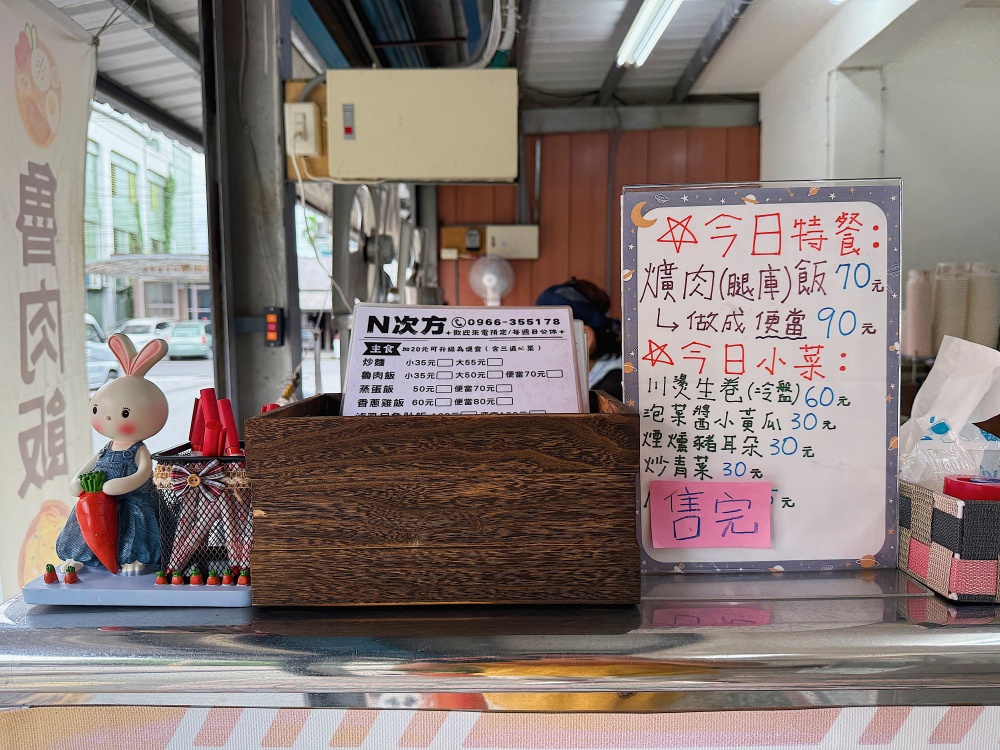 魯肉飯
N次方 0966-355178
歡迎來電預定/每週日公休
主食 加20元可升級為便當(含三道配菜)
炒麵 小35元 大55元
魯肉飯 小35元 大50元 便當70元
蒸蛋飯 50元 便當70元
香蔥雞飯 60元 便當80元
☆今日特餐:
爌肉(腿庫)飯 70元
↳做成便當 90元
☆今日小菜:
川燙生卷(冷盤)60元
泡菜醬小黃瓜30元
煙燻豬耳朵30元
炒青菜30元
售完
元